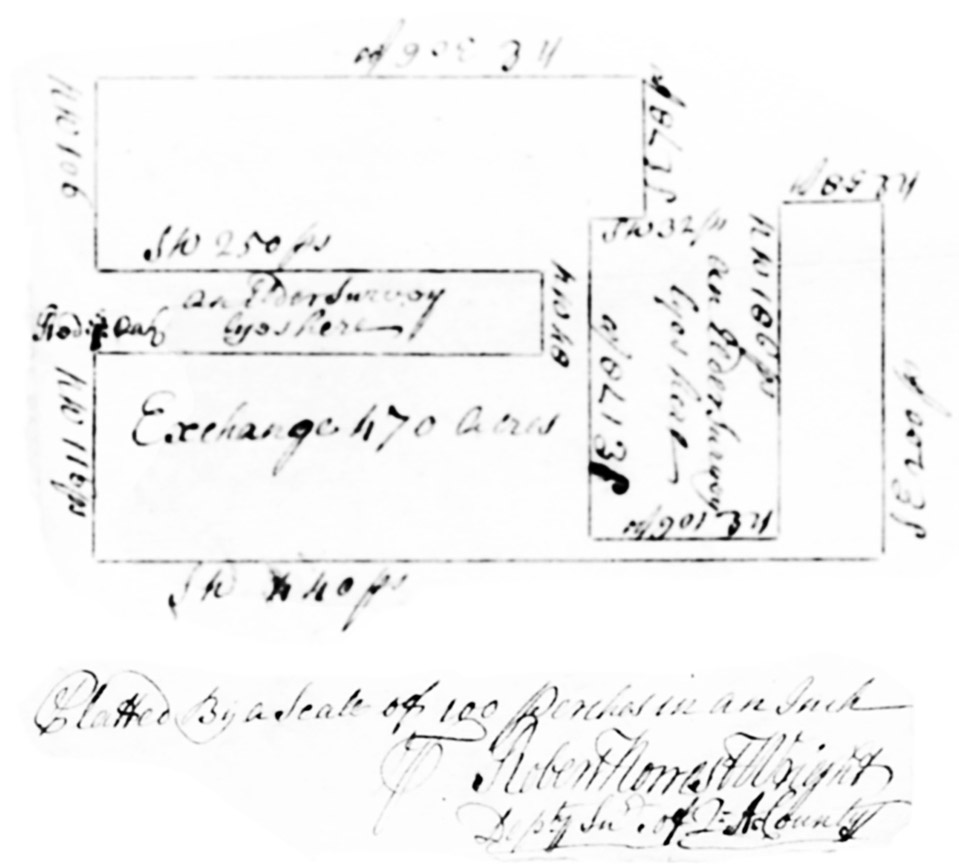 NE 306 ps
NW 106
SE 78 ps
NE 58 ps
SW 250 ps
SW 32 ps
NW 186 ps
an Elder Survey
lyes here
NW 48
an Elder Survey
lyes here
Red Oak
SE 178 ps
NW 116 ps
Exchange 470 Acres
NE 106 ps
SE 200 ps
SW 440 ps
Platted By a Scale of 100 Perches in an Inch
P Robert Norrest Wright
Depty Surr. of Q: A: County